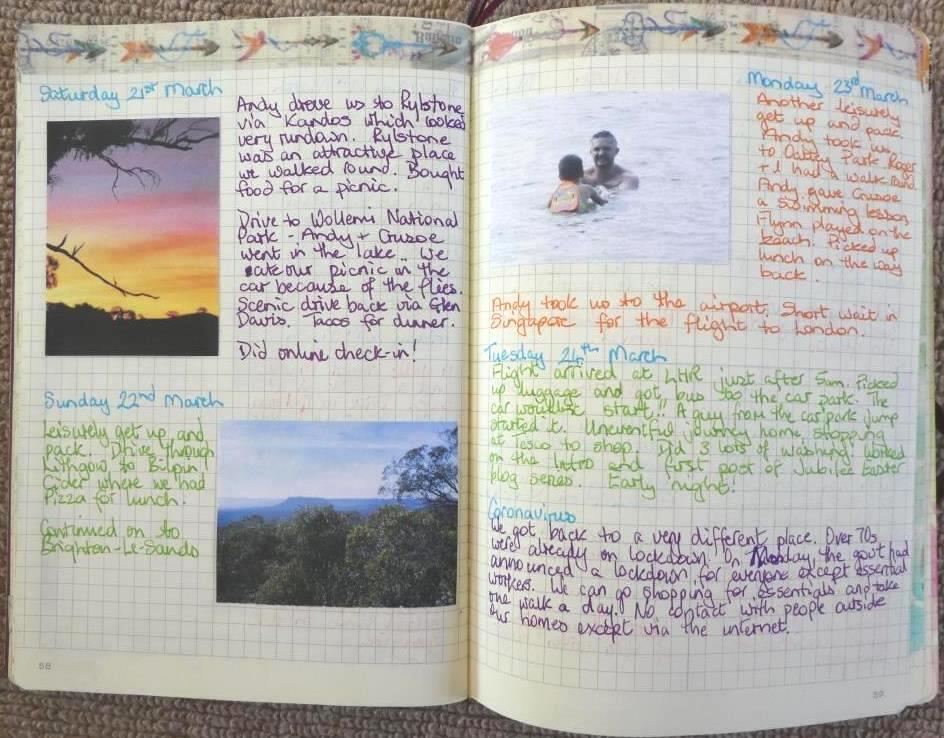 Saturday 21st March
Andy drove us to Rylstone
via Kandos which looked
very rundown. Rylstone
was an attractive place
we walked round. Bought
food for a picnic.
Drive to Wollemi National
Park - Andy + Crusoe
went in the lake. We
ate our picnic in the
car because of the flies.
Scenic drive back via Glen
Davis. Tacos for dinner.
Did online check-in!
Sunday 22nd March
Leisurely get up and
pack. Drive through
Lithgow to Bilpin
Cider where we had
Pizza for lunch.
Continued on to
Brighton-Le-Sands
58
Monday 23rd March
Another leisurely
get up and pack.
Andy took us
to Oatley Park Roger
+ I had a walk round
Andy gave Crusoe
a swimming lesson,
Flynn played on the
beach. Picked up
lunch on the way
back.
Andy took us to the airport. Short wait in
Singapore for the flight to London.
Tuesday 24th March
Flight arrived at LHR just after 5am. Picked
up luggage and got bus to the car park. The
car wouldn't start!! A guy from the car park jump
started it. Uneventful journey home stopping
at Tesco to shop. Did 3 lots of washing, worked
on the Intro and first post of Jubilee Easter
blog series. Early night!
Coronavirus
We got back to a very different place. Over 70s
were already on lockdown. On Monday, the gov't had
announced a lockdown for everyone except essential
workers. We can go shopping for essentials and take
one walk a day. No contact with people outside
our homes except via the internet.
59